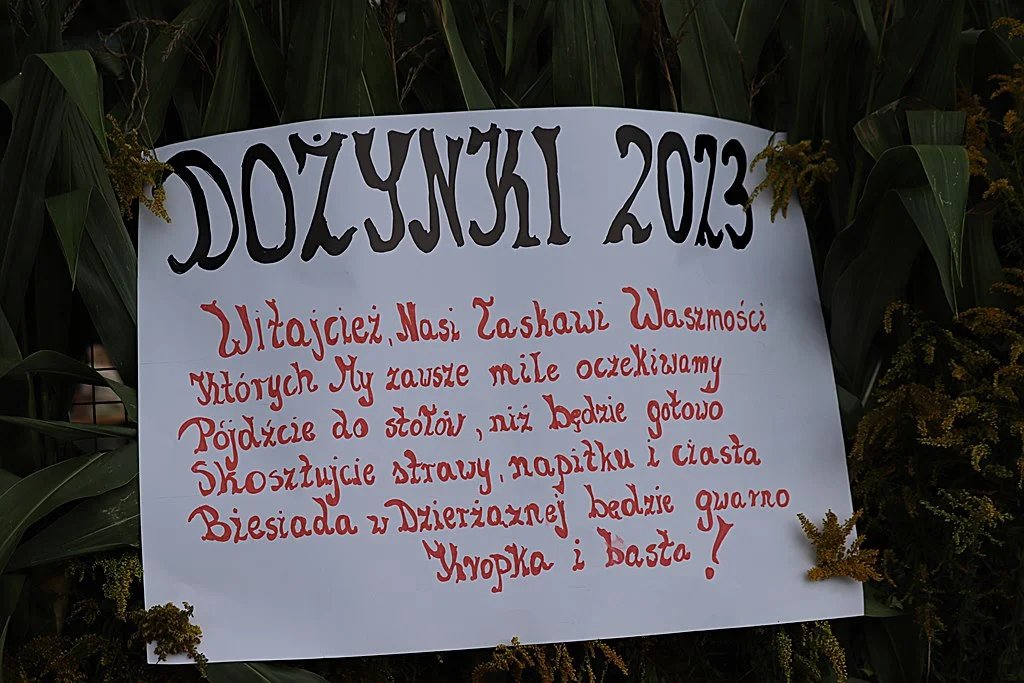 DOŻYNKI 2023
Witajcież, Nasi Łaskawi Waszmości
Których My zawsze mile oczekiwamy
Pójdźcie do stołów, niż będzie gotowo
Skosztujcie strawy, napitku i ciasta
Biesiada w Dzierżaznej będzie gwarno
Kropka i basta!